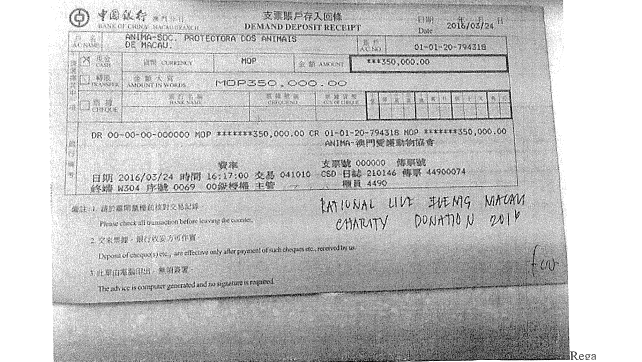 中國銀行 澳門分行
BANK OF CHINA MACAU BRANCH
支票賬戶存入回條
DEMAND DEPOSIT RECEIPT
日期
Date
2016/03/24
戶名
A/C NAME
ANIMA-SOC. PROTECTORA DOS ANIMAIS
DE MACAU.
A/C NO.
01-01-20-794318
現金
CASH
貨幣 CURRENCY
MOP
金額 AMOUNT
***350,000.00
轉賬
TRANSFER
金額大寫
AMOUNT IN WORDS
MOP350,000.00
CHEQUE
BANK NAME
DR 00-00-00-000000 MOP *******350,000.00 CR 01-01-20-794318 MOP *******350,000.00
ANIMA-澳門愛護動物協會
費率 支票號 000000 傳票號
日期 2016/03/24 時間 16:17:00 交易 041010 CSD 日誌 210146 傳票 44900074
終端 W304 序號 0069 00級授權 主管 櫃員 4490
備註: 1. 請於離開櫃檯前核對交易記錄
Please check all transaction before leaving the counter.
NATIONAL LIVE MACAU
CHARITY DONATION 2016
Deposit of cheque(s) etc., are effective only after payment of such cheques etc., received by us.
The advice is computer generated and no signature is required.
Rega